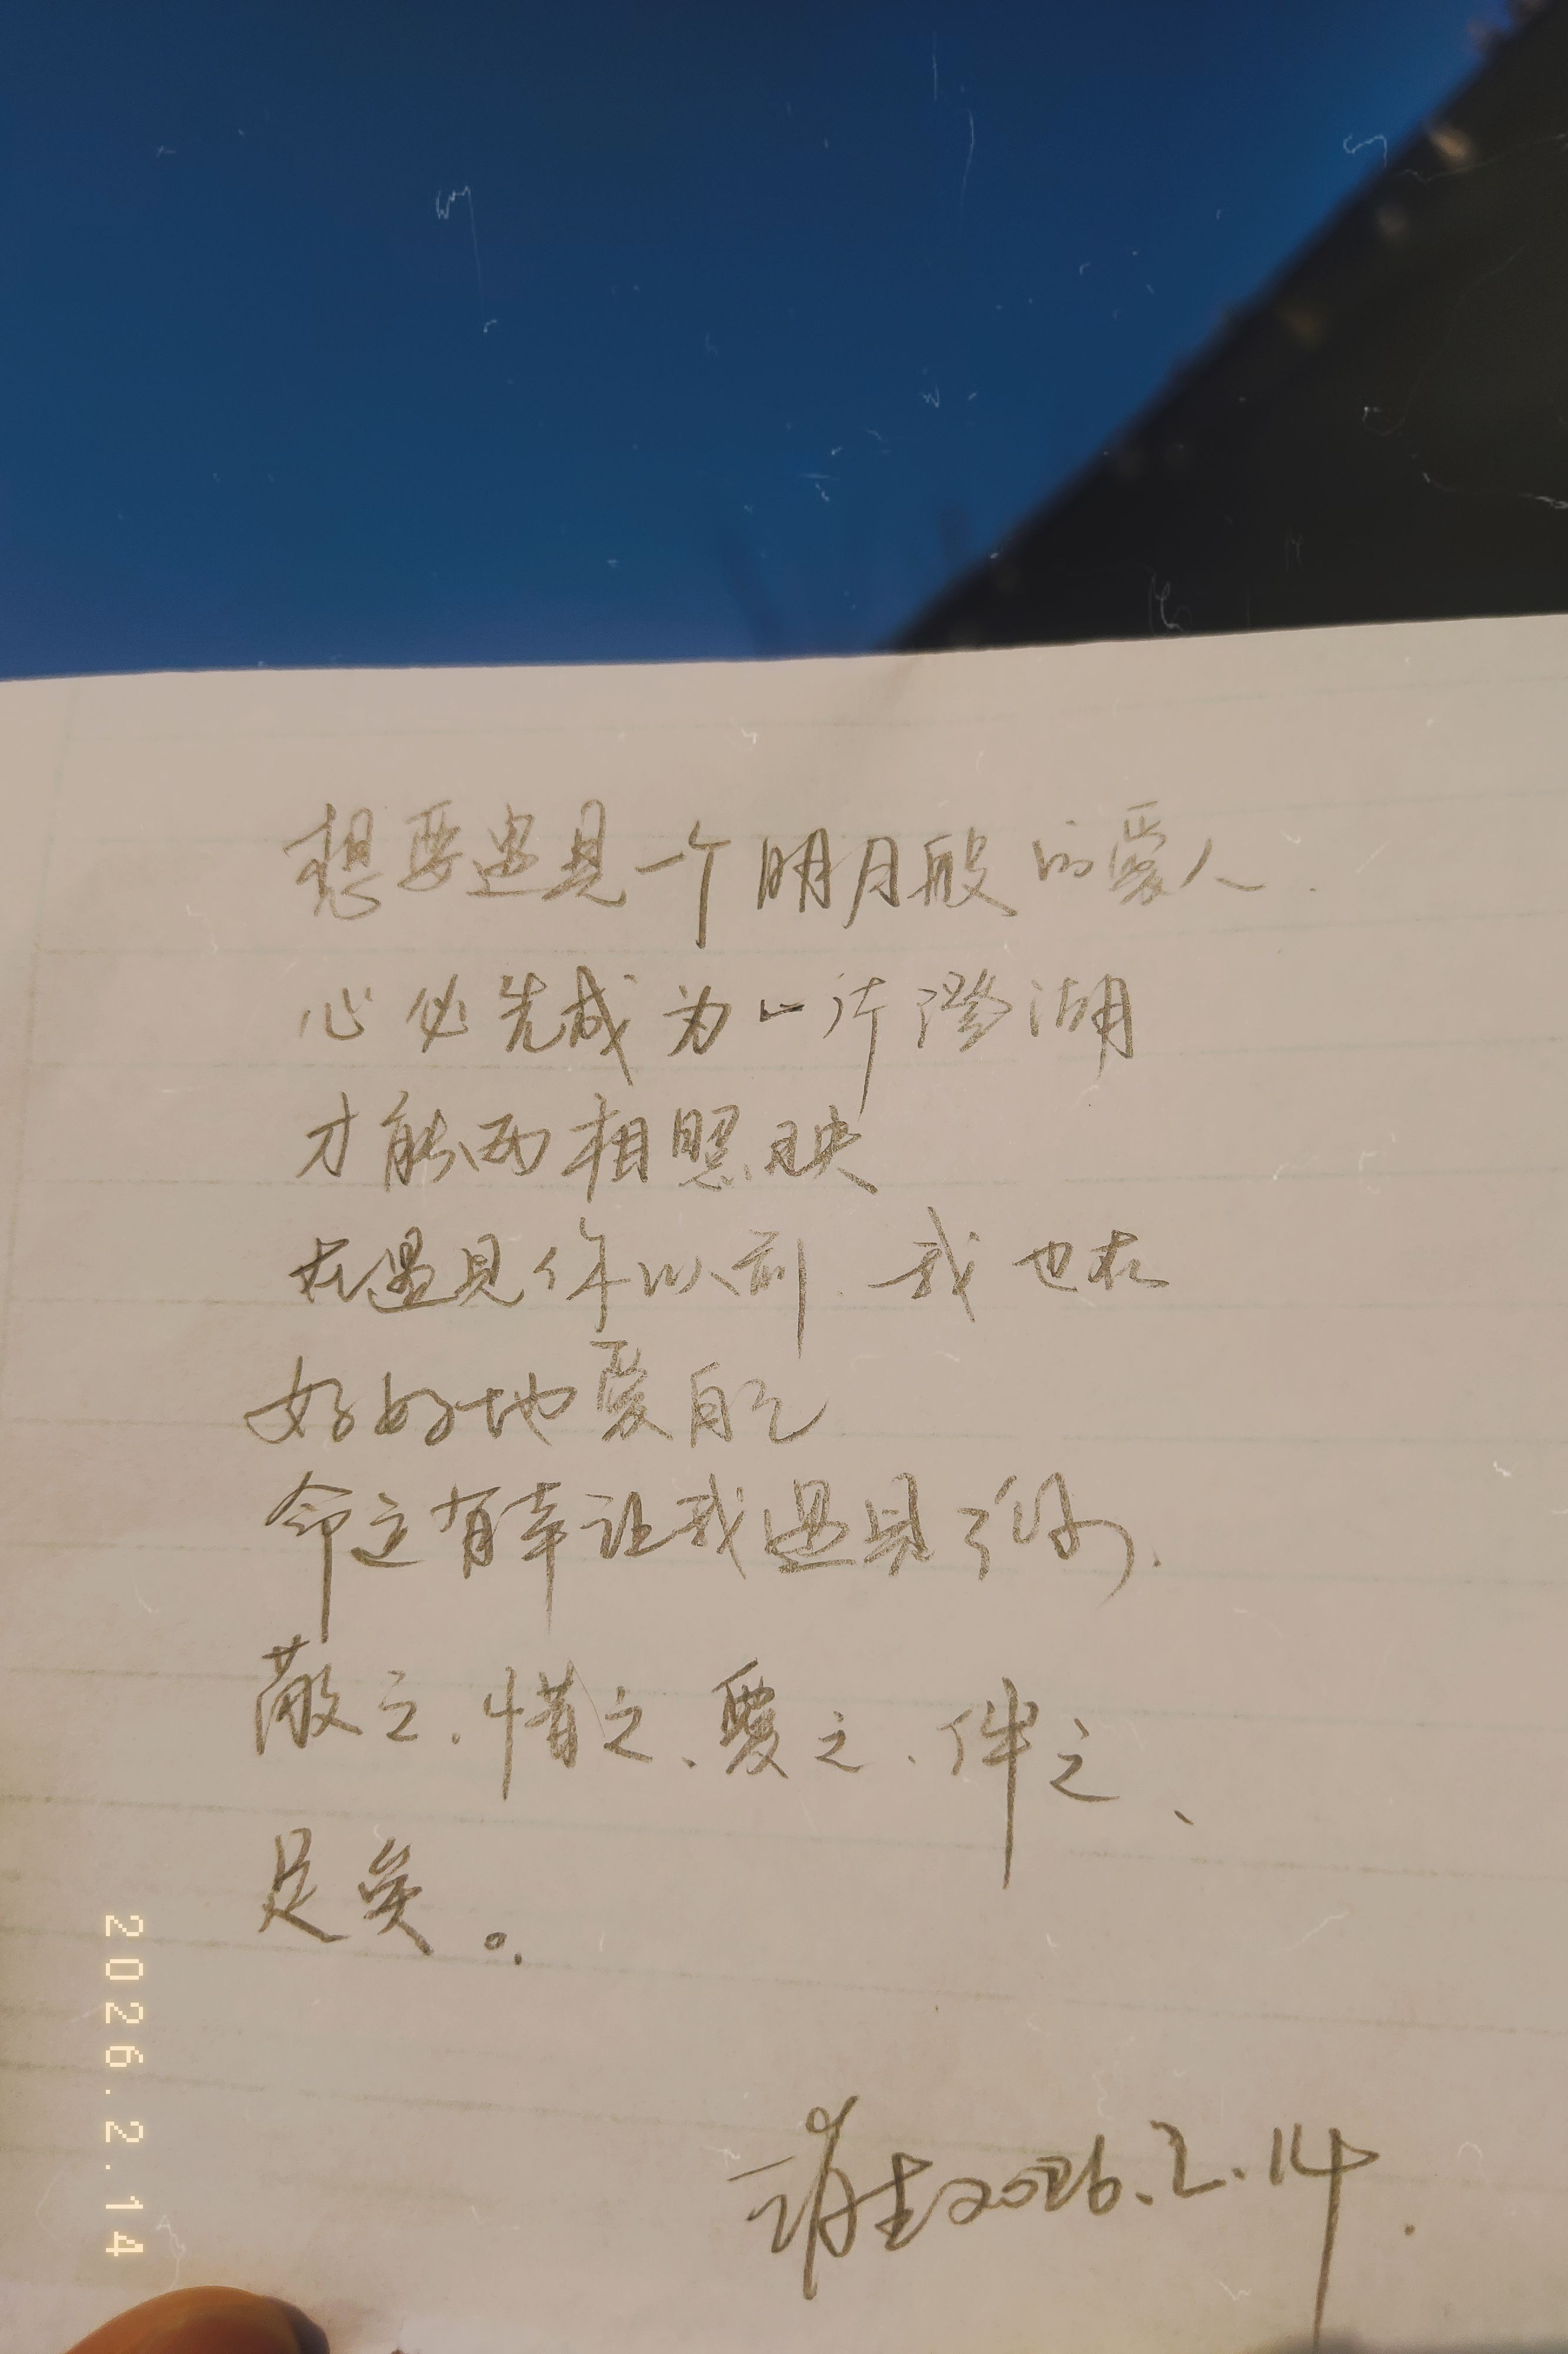 想要遇见一个明月般的爱人.
心必先成为一片澄湖
才能两相照映
在遇见你以前.我也在
好好地爱自己
命运有幸让我遇见了你.
敬之.惜之、爱之、伴之、
足矣。
2026.2.14.
2026.2.14